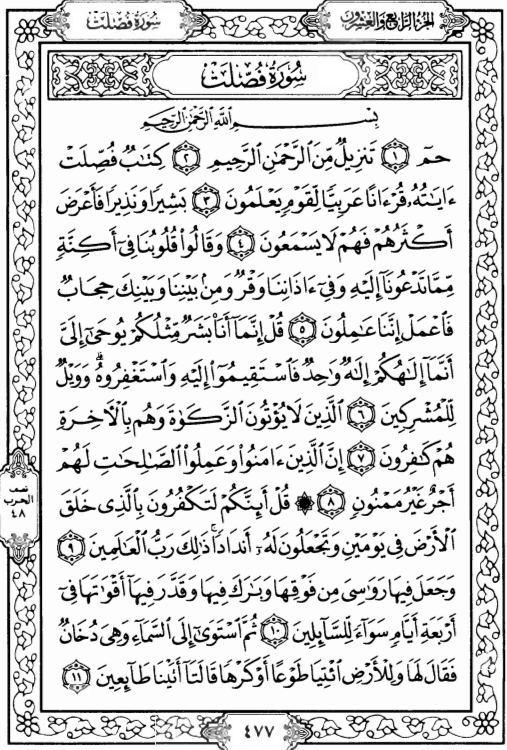 سُورَةُ فُصِّلَتْ
الجُزْءُ الرَّابِعُ وَالعِشْرُونَ
سُورَةُ فُصِّلَتْ
بِسْمِ اللَّهِ الرَّحْمَٰنِ الرَّحِيمِ
حمٓ ١ تَنزِيلٌ مِّنَ الرَّحْمَٰنِ الرَّحِيمِ ٢ كِتَابٌ فُصِّلَتْ
ءَايَاتُهُۥ قُرْءَانًا عَرَبِيًّا لِّقَوْمٍ يَعْلَمُونَ ٣ بَشِيرًا وَنَذِيرًا فَأَعْرَضَ
أَكْثَرُهُمْ فَهُمْ لَا يَسْمَعُونَ ٤ وَقَالُوا۟ قُلُوبُنَا فِىٓ أَكِنَّةٍ
مِّمَّا تَدْعُونَآ إِلَيْهِ وَفِىٓ ءَاذَانِنَا وَقْرٌ وَمِنۢ بَيْنِنَا وَبَيْنِكَ حِجَابٌ
فَاعْمَلْ إِنَّنَا عَامِلُونَ ٥ قُلْ إِنَّمَآ أَنَا۠ بَشَرٌ مِّثْلُكُمْ يُوحَىٰٓ إِلَىَّ
أَنَّمَآ إِلَٰهُكُمْ إِلَٰهٌ وَاحِدٌ فَاسْتَقِيمُوٓا۟ إِلَيْهِ وَاسْتَغْفِرُوهُ ۗ وَوَيْلٌ
لِّلْمُشْرِكِينَ ٦ الَّذِينَ لَا يُؤْتُونَ الزَّكَوٰةَ وَهُم بِالْأَخِرَةِ
هُمْ كَافِرُونَ ٧ إِنَّ الَّذِينَ ءَامَنُوا۟ وَعَمِلُوا۟ الصَّالِحَاتِ لَهُمْ
أَجْرٌ غَيْرُ مَمْنُونٍ ٨ ۞ قُلْ أَئِنَّكُمْ لَتَكْفُرُونَ بِالَّذِى خَلَقَ
الْأَرْضَ فِى يَوْمَيْنِ وَتَجْعَلُونَ لَهُۥٓ أَندَادًا ۚ ذَٰلِكَ رَبُّ الْعَالَمِينَ ٩
وَجَعَلَ فِيهَا رَوَاسِىَ مِن فَوْقِهَا وَبَارَكَ فِيهَا وَقَدَّرَ فِيهَآ أَقْوَاتَهَا فِىٓ
أَرْبَعَةِ أَيَّامٍ سَوَآءً لِّلسَّآئِلِينَ ١٠ ثُمَّ اسْتَوَىٰٓ إِلَى السَّمَآءِ وَهِىَ دُخَانٌ
فَقَالَ لَهَا وَلِلْأَرْضِ ائْتِيَا طَوْعًا أَوْ كَرْهًا قَالَتَآ أَتَيْنَا طَآئِعِينَ ١١
نصف
الحزب
٤٨
٤٧٧